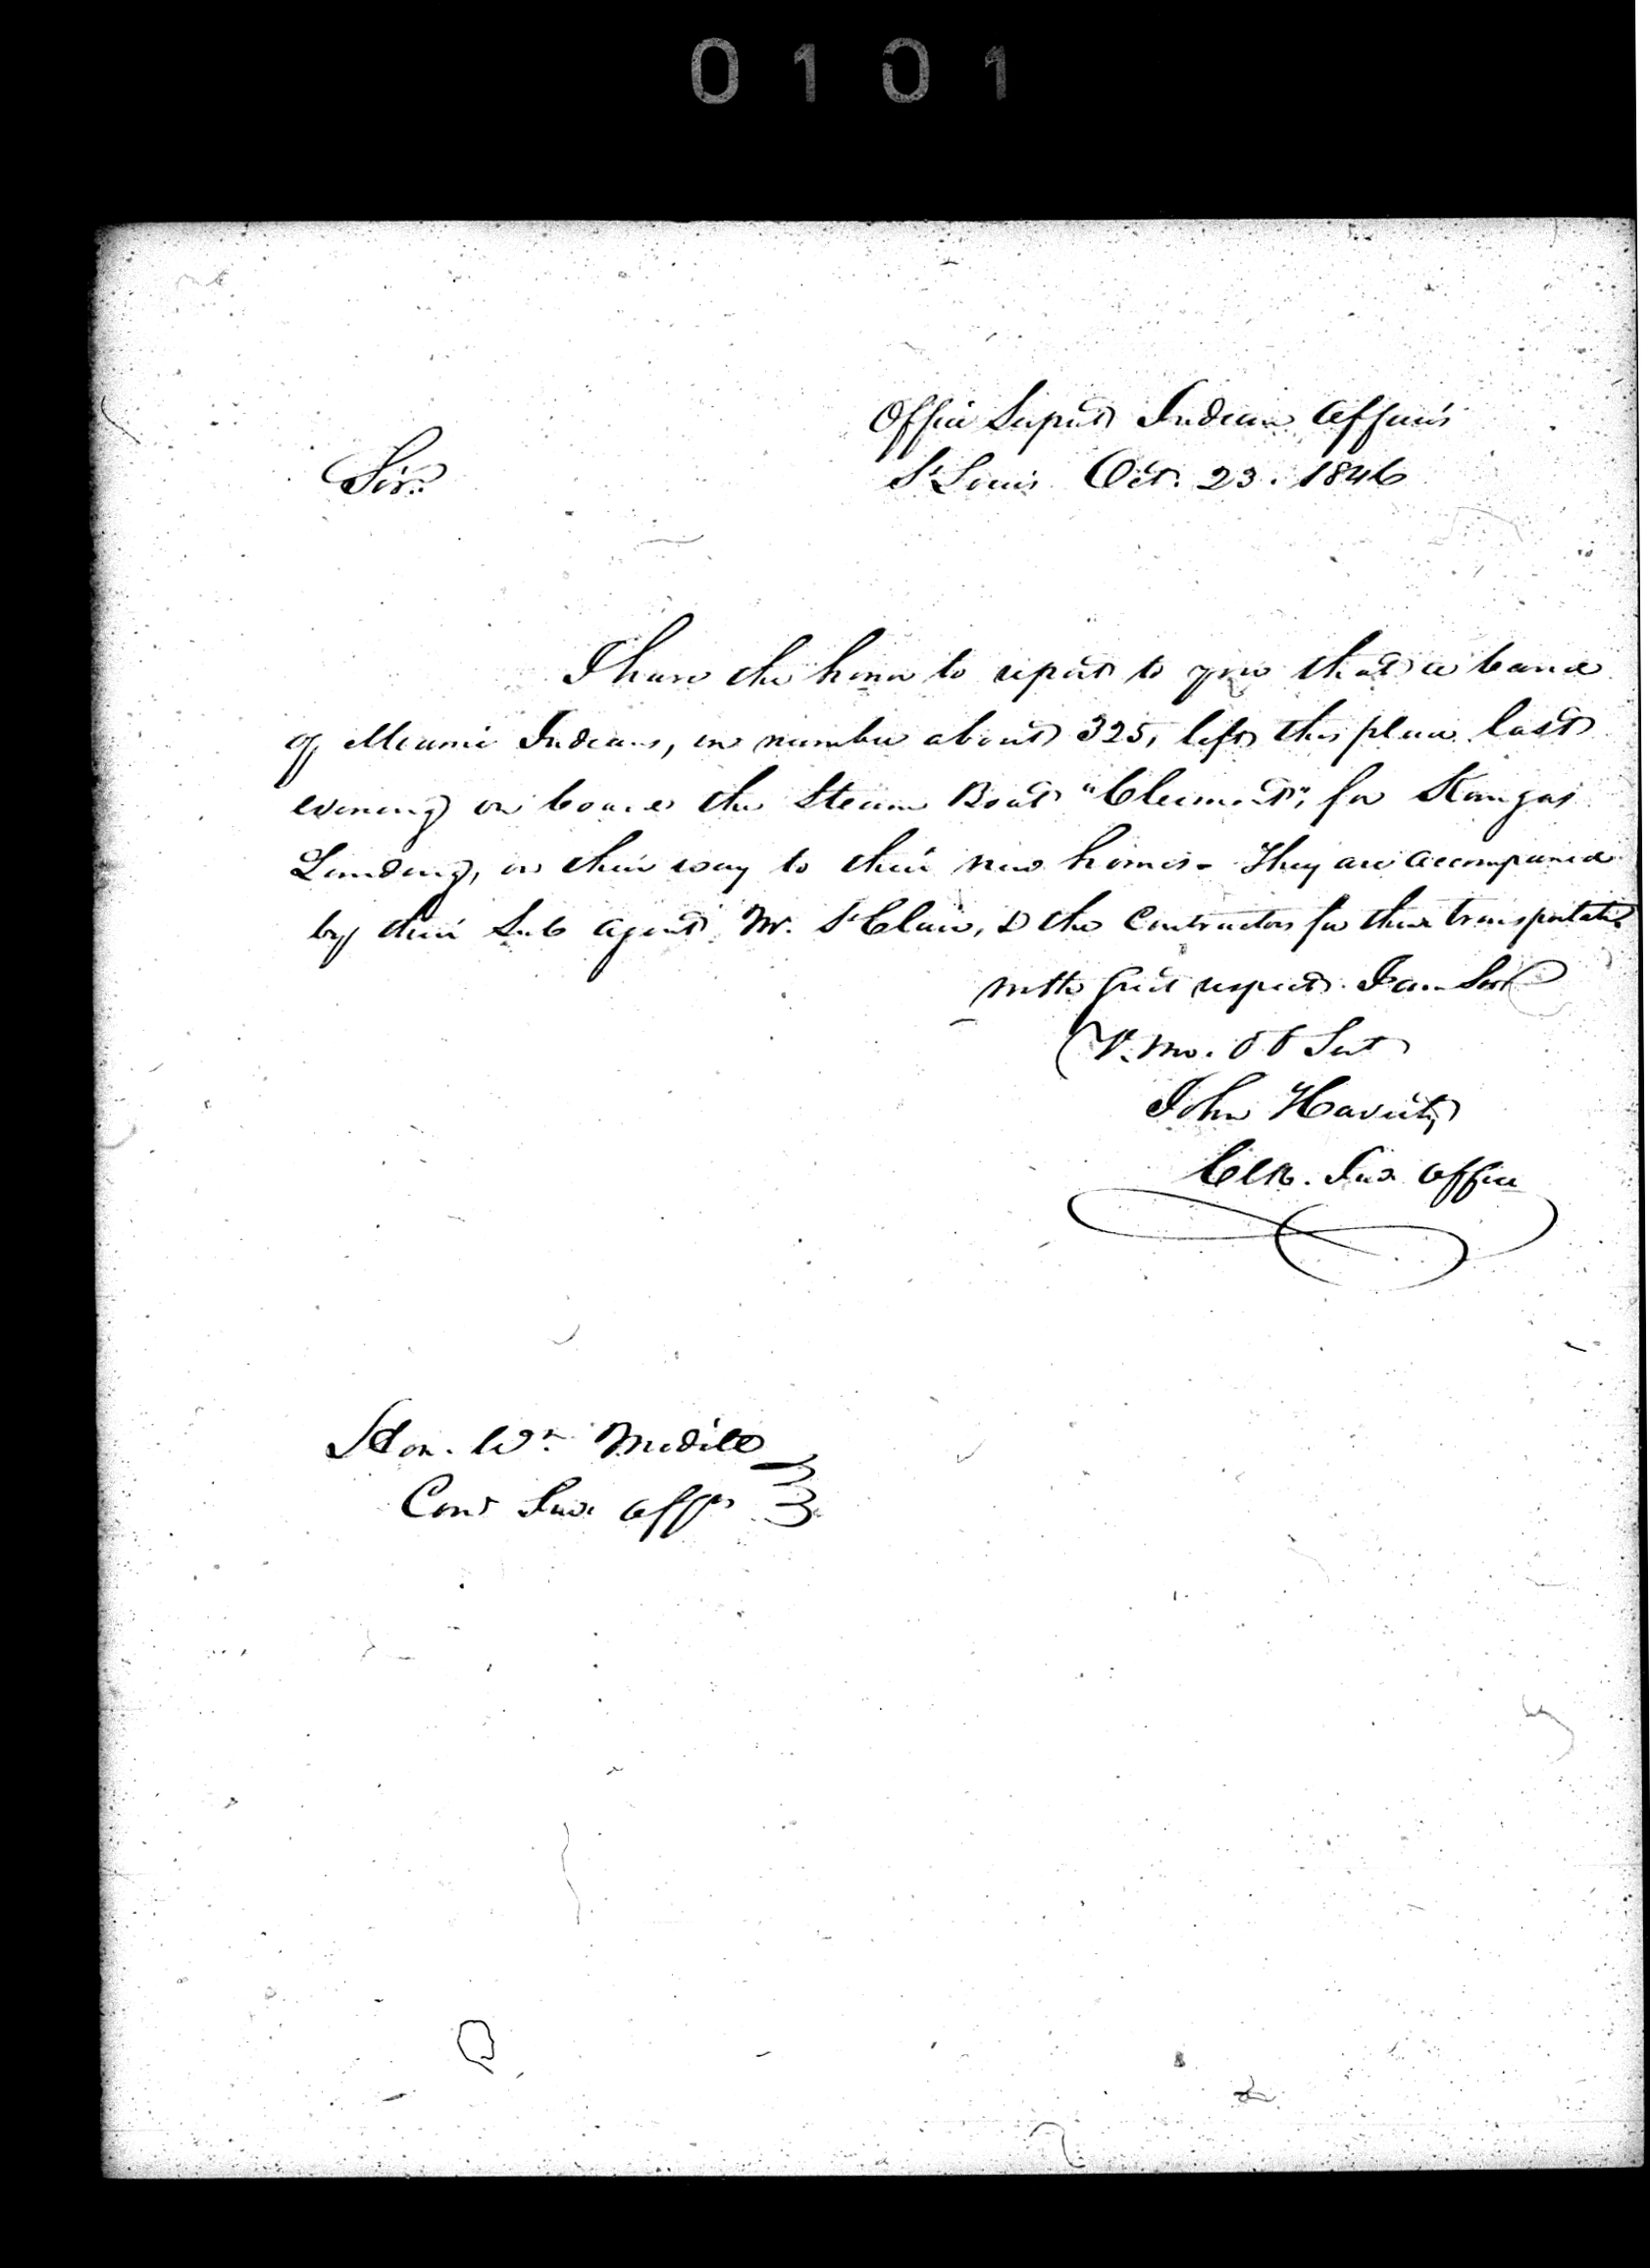 0101
Office Supdt Indian Affairs
St Louis Oct. 23. 1846
Sir
I have the honor to report to you that a band
of Miami Indians, in number about 325, left this place last
evening on board the Steam Boat "Clermont", for Kanzas
Landing, on their way to their new homes - They are accompanied
by their Sub agent Mr. St Clair, & the Contractors for their transportation
With great respect I am Sir
V. Mo. Ob Svt
John Haverty
Clk. Ind Office
Hon. Wm Medill
Comr Ind Affrs